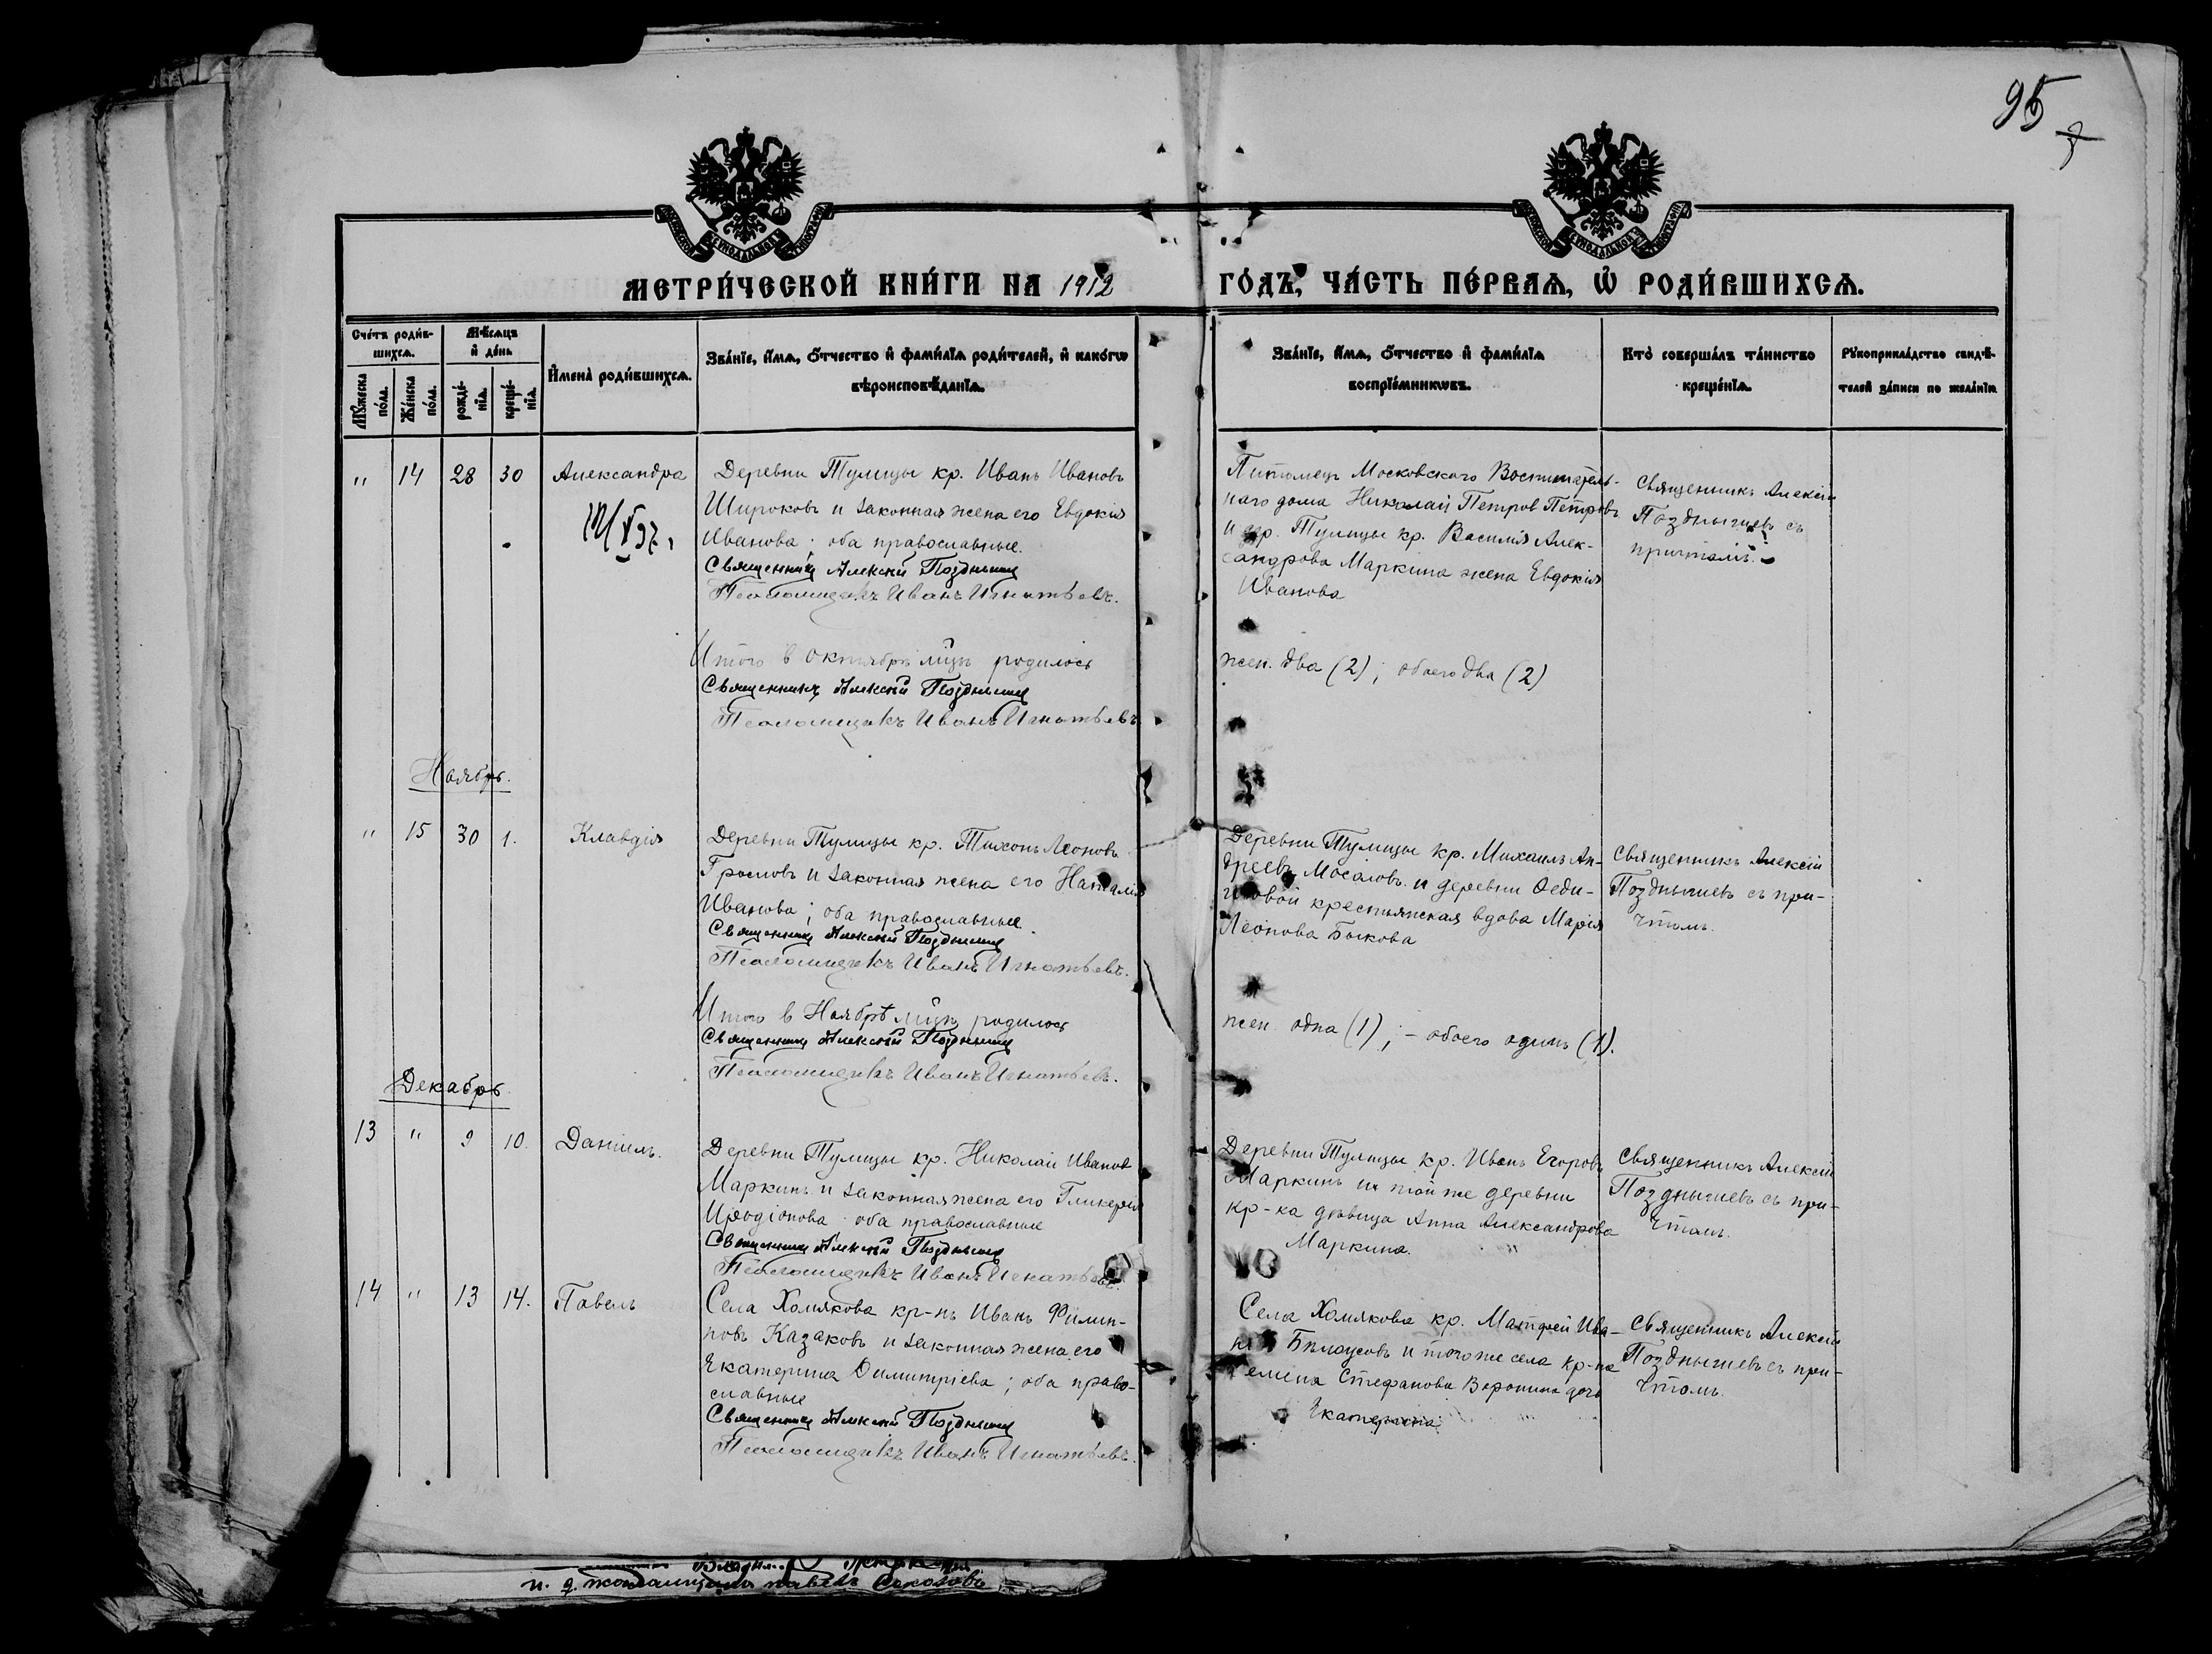 95
МЕТРИ́ЧЕСКОЙ КНИ́ГИ НА 1912 ГО́ДЪ, ЧА́СТЬ ПЕ́РВАѦ, Ѽ РОДИ́ВШИХСѦ.
Счетъ роди́вшихсѧ.
Мꙋ́жеска по́ла.
Же́нска по́ла.
Мѣ́сѧцъ и҆ де́нь
рожде́нїѧ.
креще́нїѧ.
И҆мена̀ роди́вшихсѧ.
Зва́нїе, и҆́мѧ, ѻ҆́тчество и҆ фами́лїѧ роди́телей, и҆ како́гѡ
вѣроисповѣ́данїѧ.
Зва́нїе, и҆́мѧ, ѻ҆́тчество и҆ фами́лїѧ
воспрїе́мникѡвъ.
Кто̀ соверша́лъ та́инство
креще́нїѧ.
Рꙋкоприкла́дство свидѣ́-
телей за́писи по жела́нїю
" 14 28 30 Александра
Деревни Тулицы кр. Иванъ Ивановъ
Широковъ и законная жена его Евдокія
Иванова; оба православные.
Священникъ Алексій Позднышевъ
Псаломщикъ Иванъ Игнатьевъ.
Питомецъ Московскаго Воспитатель-
наго дома Николай Петровъ Петровъ
и дер. Тулицы кр. Василія Алек-
сандрова Маркина жена Евдокія
Иванова
Священникъ Алексій
Позднышевъ съ
причтомъ.
Итого в октябрѣ м-цѣ родилось
жен. два (2); обоего два (2)
Священникъ Алексій Позднышевъ
Псаломщикъ Иванъ Игнатьевъ
Ноябрь.
" 15 30 1. Клавдія
Деревни Тулицы кр. Тихонъ Леоновъ
Грословъ и законная жена его Наталія
Иванова; оба православные.
Священникъ Алексій Позднышевъ
Псаломщикъ Иванъ Игнатьевъ.
Деревни Тулицы кр. Михаилъ Ан-
дреевъ Мосаловъ и деревни Феди-
щовой крестьянская вдова Марія
Леонова Быкова
Священникъ Алексій
Позднышевъ съ при-
чтомъ.
Итого в Ноябрѣ м-цѣ родилось
жен. одна (1); – обоего одинъ (1).
Священникъ Алексій Позднышевъ
Псаломщикъ Иванъ Игнатьевъ.
Декабрь
13 " 9 10. Даніилъ.
Деревни Тулицы кр. Николай Иванов
Маркинъ и законная жена его Гликерія
Иродіонова оба православные
Священникъ Алексій Позднышевъ
Псаломщикъ Иванъ Игнатьевъ
Деревни Тулицы кр. Иванъ Егоровъ
Маркинъ и той же деревни
кр-ка дѣвица Анна Александрова
Маркина.
Священникъ Алексій
Позднышевъ съ при-
чтомъ.
14 " 13 14. Павелъ
Села Хомякова кр-нъ Иванъ Филип-
повъ Казаковъ и законная жена его
Екатерина Димитріева; оба право-
славные
Священникъ Алексій Позднышевъ
Псаломщикъ Иванъ Игнатьевъ.
Села Хомякова кр. Матфей Ива-
Бѣлоусовъ и того же села кр-на
Семена Стефанова Воронина дочь
Екатерина.
Священникъ Алексій
Позднышевъ съ при-
чтомъ.